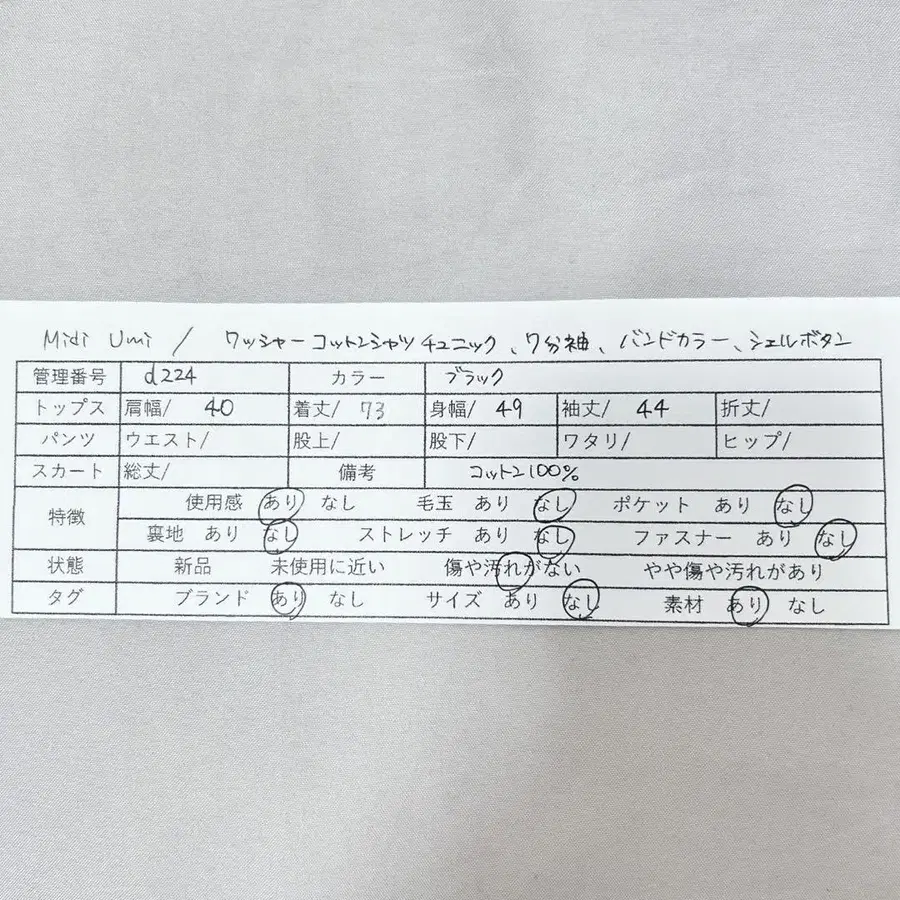 Midi Umi / ワッシャーコットンシャツチュニック、7分袖、バンドカラー、シェルボタン
管理番号 d224 カラー ブラック
トップス 肩幅/ 40 着丈/ 73 身幅/ 49 袖丈/ 44 折丈/
パンツ ウエスト/ 股上/ 股下/ ワタリ/ ヒップ/
スカート 総丈/ 備考 コットン100%
特徴 使用感 あり なし 毛玉 あり なし ポケット あり なし
裏地 あり なし ストレッチ あり なし ファスナー あり なし
状態 新品 未使用に近い 傷や汚れがない やや傷や汚れがあり
タグ ブランド あり なし サイズ あり なし 素材 あり なし